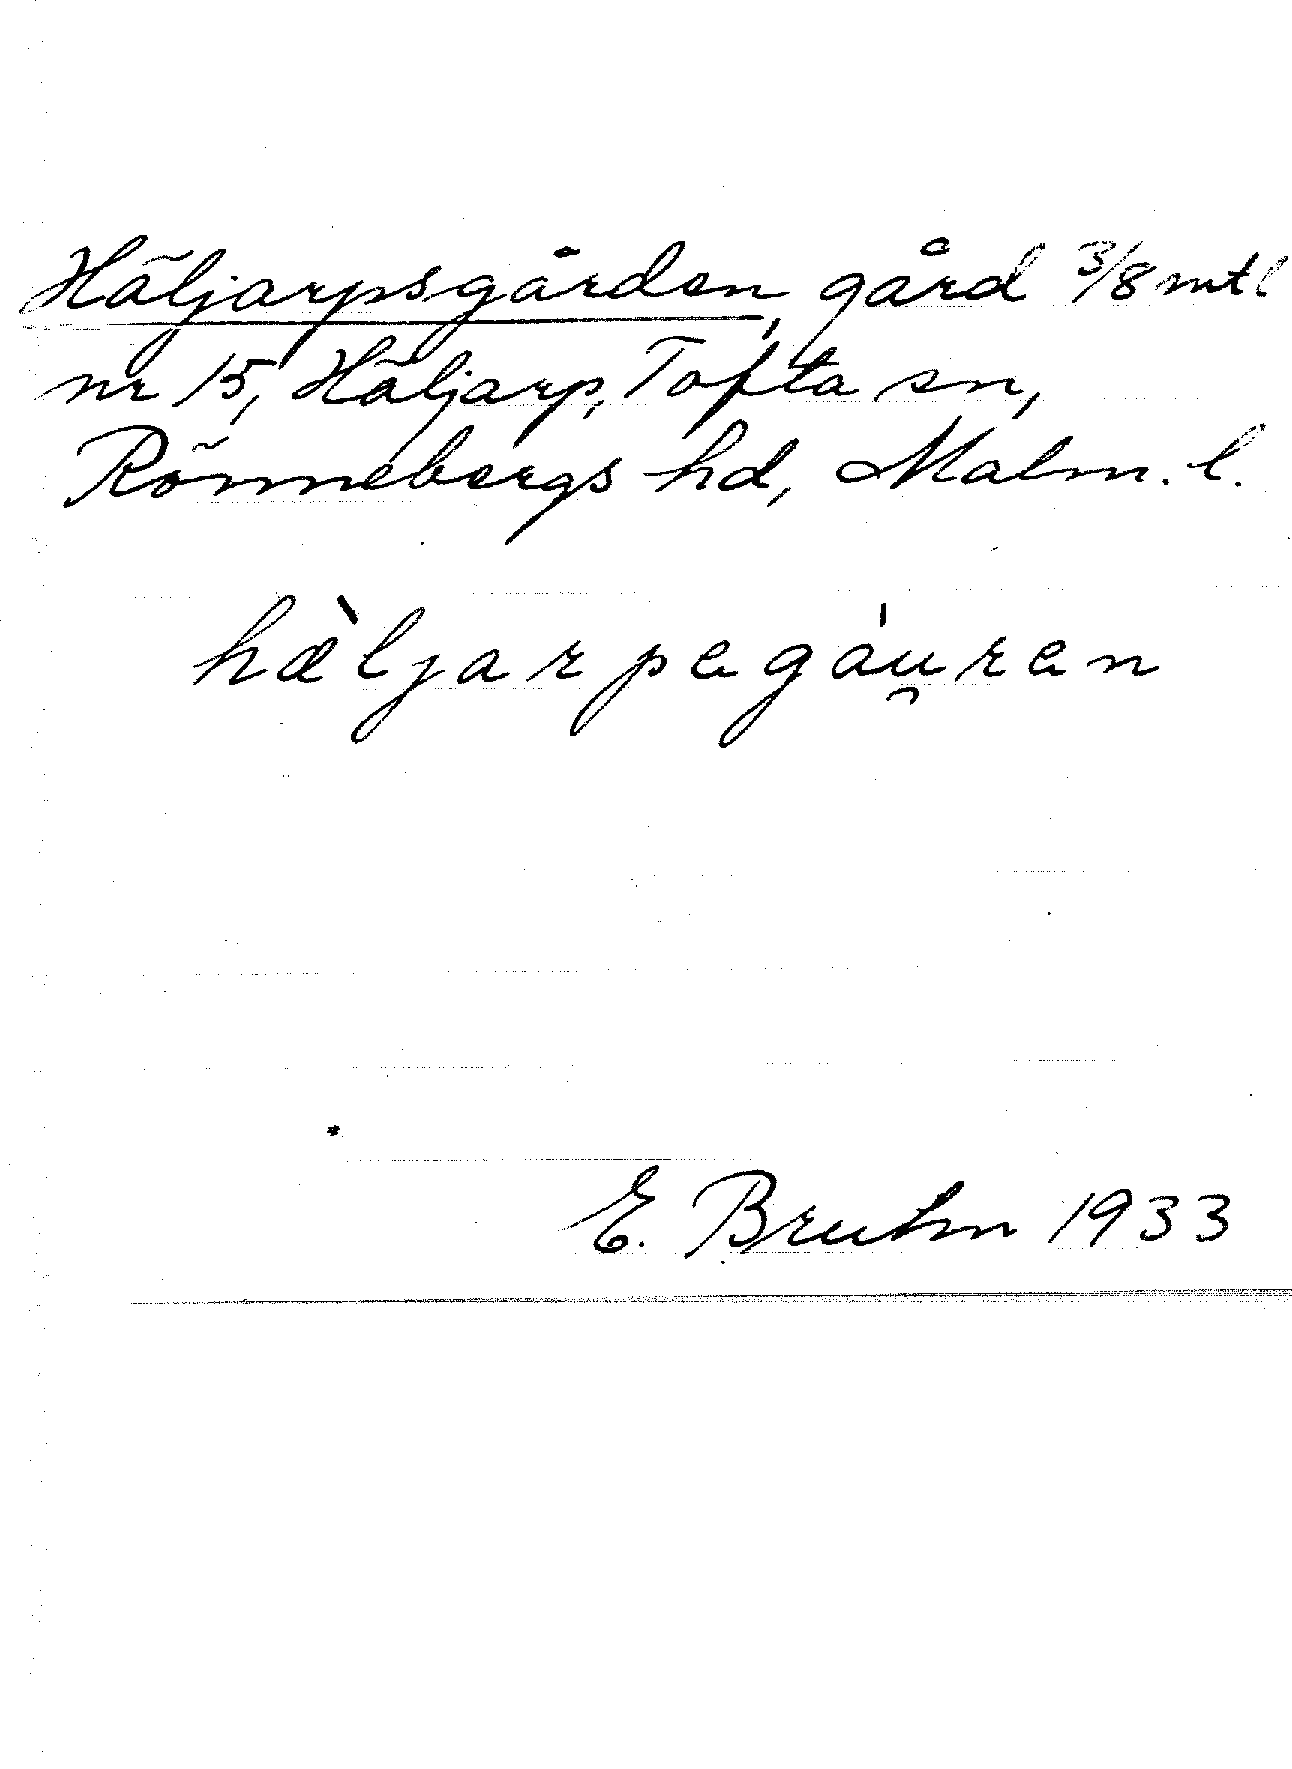 Häljarpsgården, gård 3/8 mtl
nr 15, Häljarp, Tofta sn,
Rönnebergs hd, Malm. l.
hæ̀ljarpagáu̯ren
E. Bruhn 1933